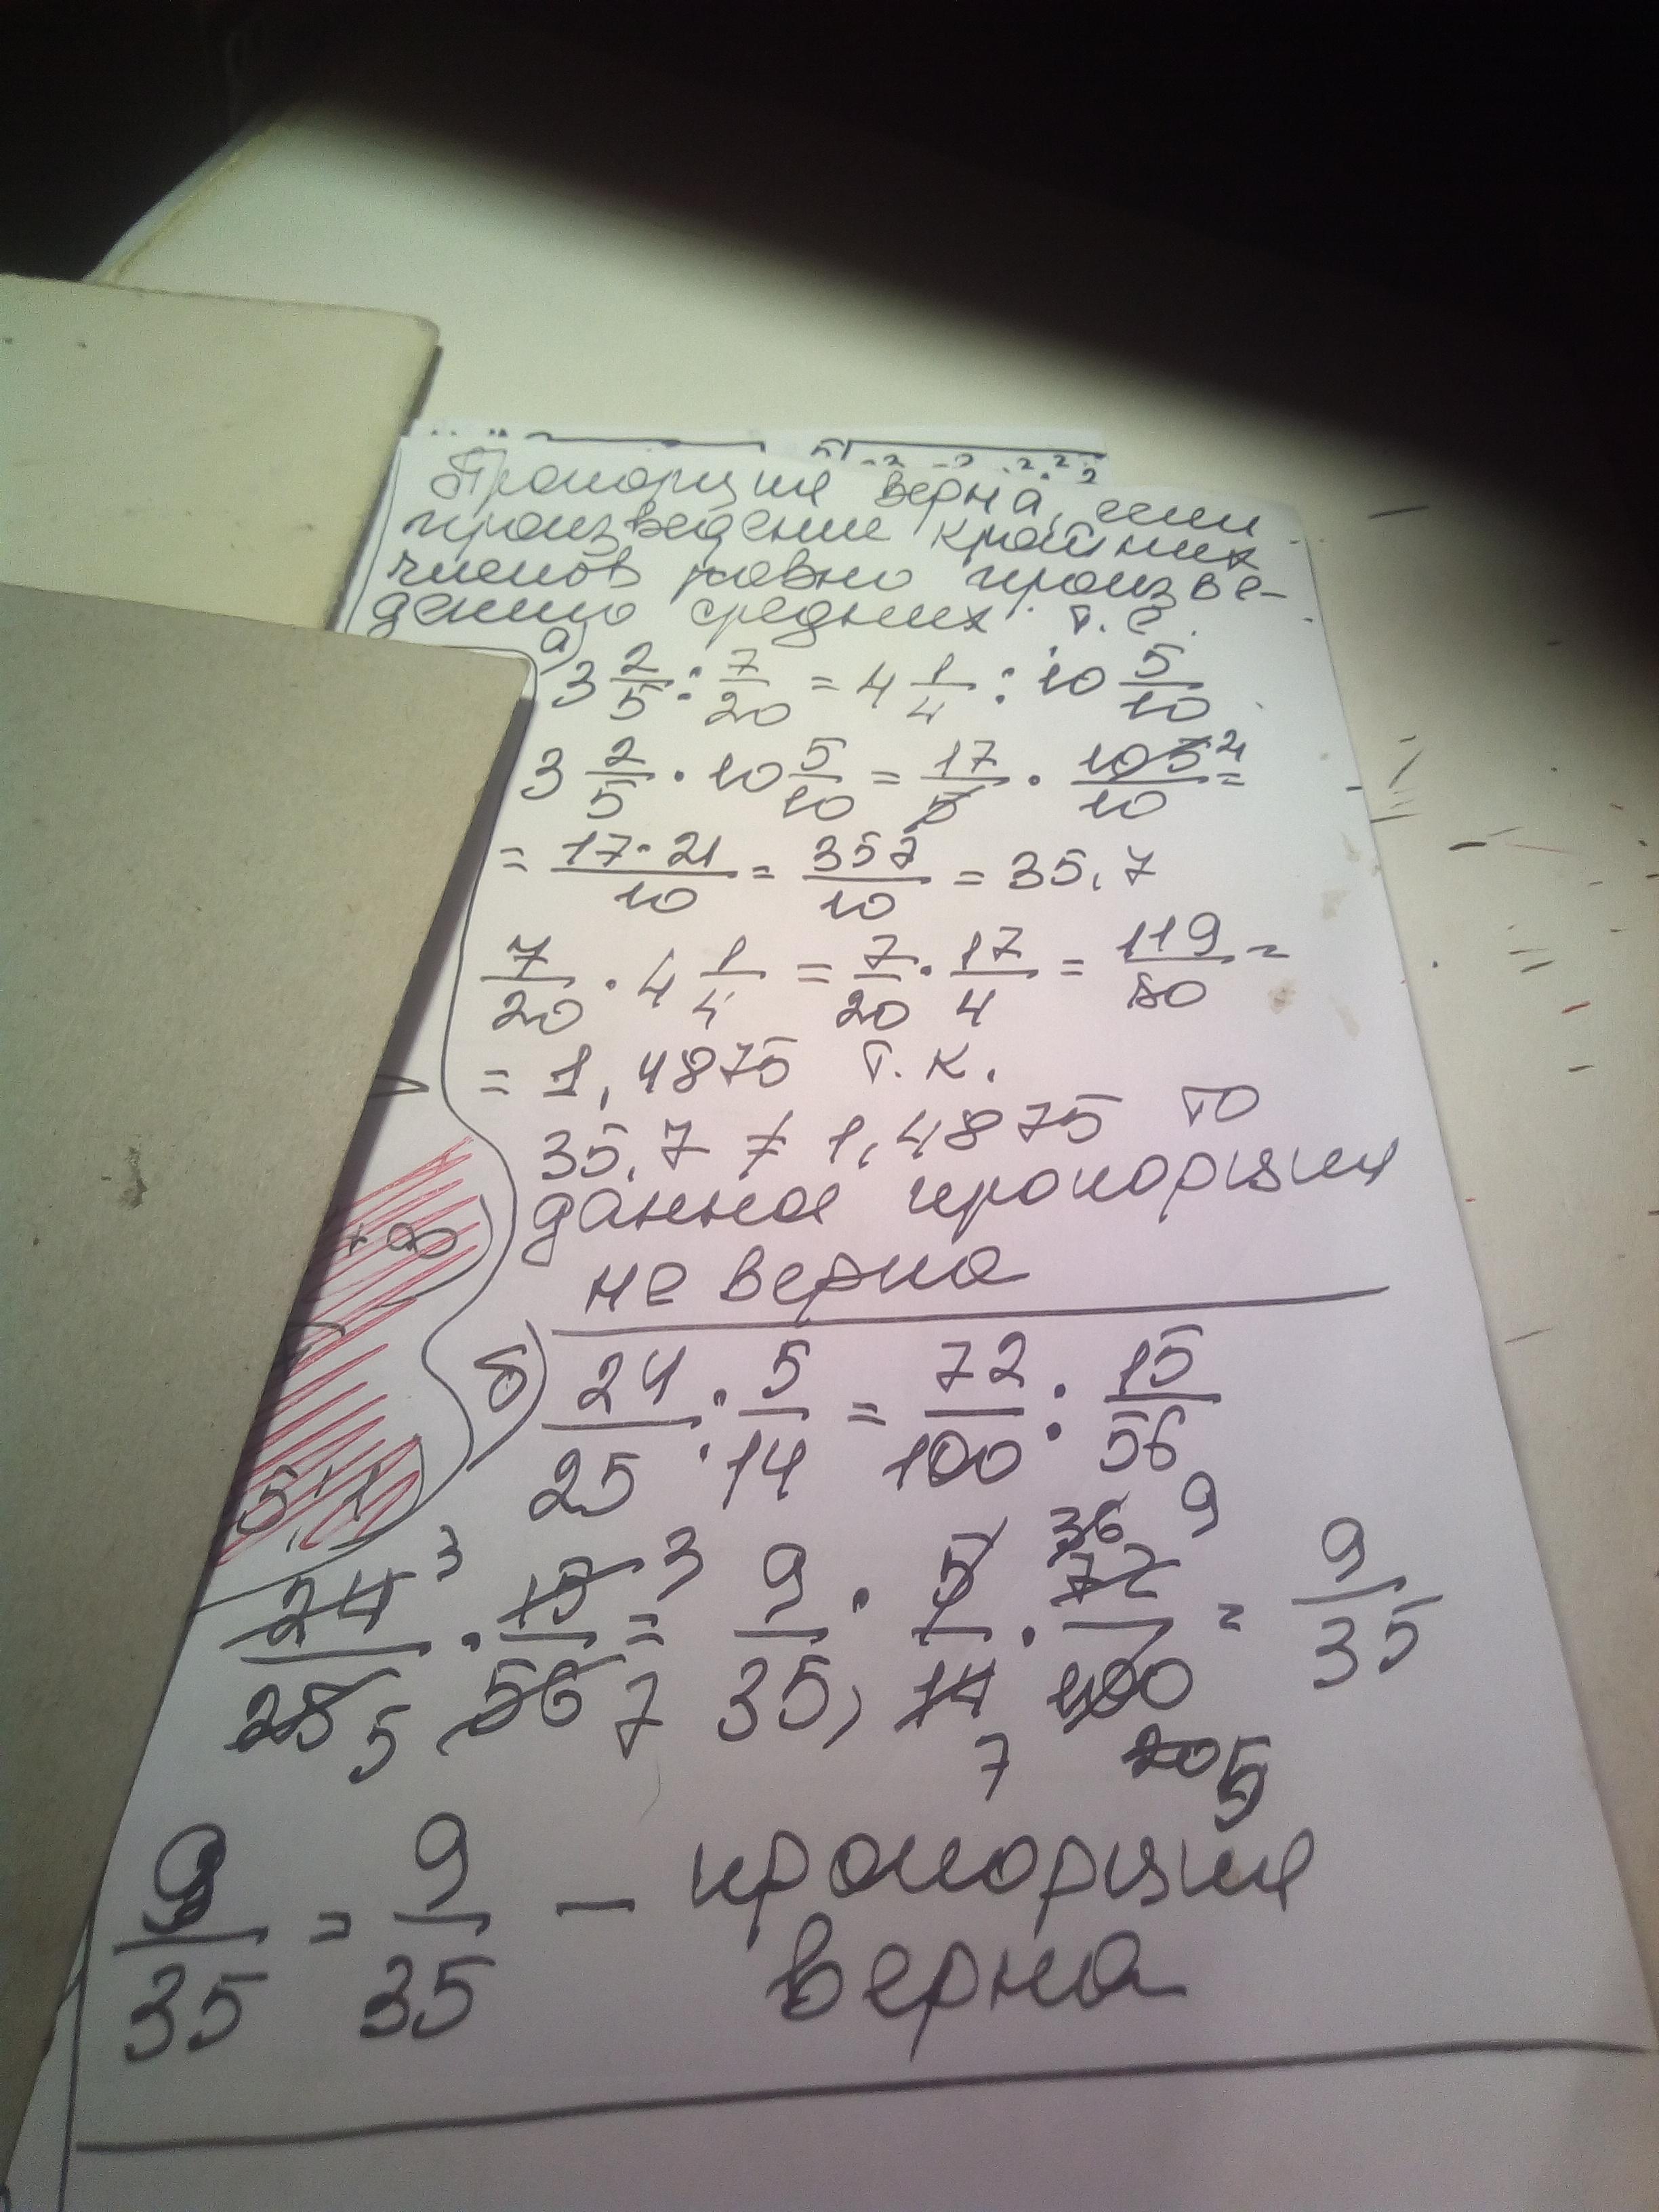 Пропорция верна, если
произведение крайних
членов равно произве-
дению средних т.е.
а)
3 2/5 : 7/20 = 4 1/4 : 10 5/10
3 2/5 · 10 5/10 = 17/5 · 105/10 =
21
= 17·21/10 = 357/10 = 35,7
7/20 · 4 1/4 = 7/20 · 17/4 = 119/80 =
= 1,4875 т.к.
35,7 ≠ 1,4875 то
данная пропорция
не верна
б) 24/25 : 5/14 = 72/100 : 15/56
3 3 36 9
24/25 · 15/56 = 9/35, 5/14 · 72/100 = 9/35
5 7 7 20 5
9/35 = 9/35 – пропорция
верна
+∞